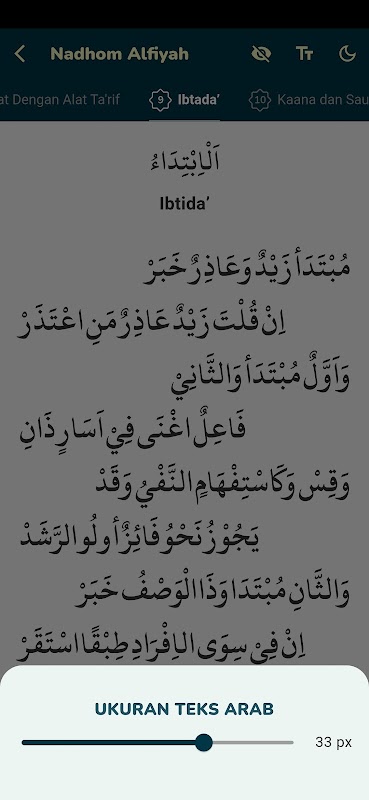 Nadhom Alfiyah
at Dengan Alat Ta'rif
9 Ibtada'
10 Kaana dan Sau
اَلْاِبْتِدَاءُ
Ibtida'
مُبْتَدَأ زَيْدٌ وَعَاذِرٌ خَبَرْ
اِنْ قُلْتَ زَيْدٌ عَاذِرٌ مَنِ اعْتَذَرْ
وَاَوَّلٌ مُبْتَدَأ وَالثَّانِيْ
فَاعِلٌ اغْنَى فِيْ اَسَارٍ ذَانِ
وَقِسْ وَكَاسْتِفْهَامٍ النَّفْيُ وَقَدْ
يَجُوْزُ نَحْوُ فَائِزٌ أُولُو الرَّشَدْ
وَالثَّانِ مُبْتَدَا وَذَا الْوَصْفُ خَبَرْ
اِنْ فِيْ سِوَى الاِفْرَادِ طِبْقًا اسْتَقَرّْ
UKURAN TEKS ARAB
33 px